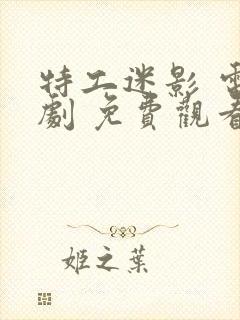 特工迷影 電
劇 免費觀看
姬之葉